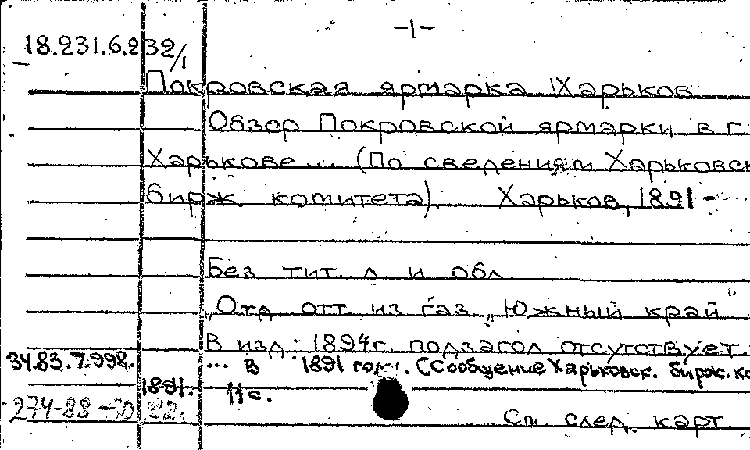 -1-
18.231.6.232/1
Покровская ярмарка Харьков
Обзор Покровской ярмарки в г.
Харькове... (По сведениям Харьковск
бирж. комитета). Харьков, 1891-
Без тит. л. и обл.
"Отд. отт. из газ. "Южный край"
В изд. 1894г. подзагол. отсутствует.
34.83.7.998. ... в 1891 году. (Сообщение Харьковск. бирж. ко
1891. 11с.
274-88
См. след. карт.